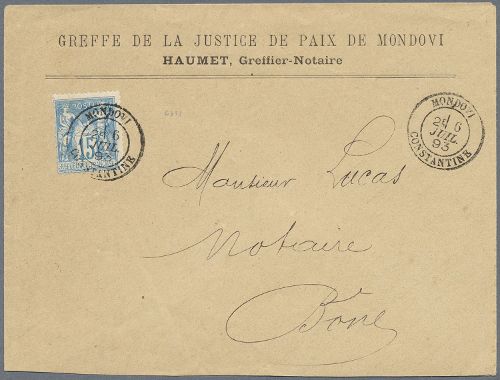 GREFFE DE LA JUSTICE DE PAIX DE MONDOVI
HAUMET, Greffier-Notaire
MONDOVI
2E 6
JUIL.
93
CONSTANTINE
15
MONDOVI
2E 6
JUIL.
93
CONSTANTINE
Monsieur Lucas
Notaire
Bône